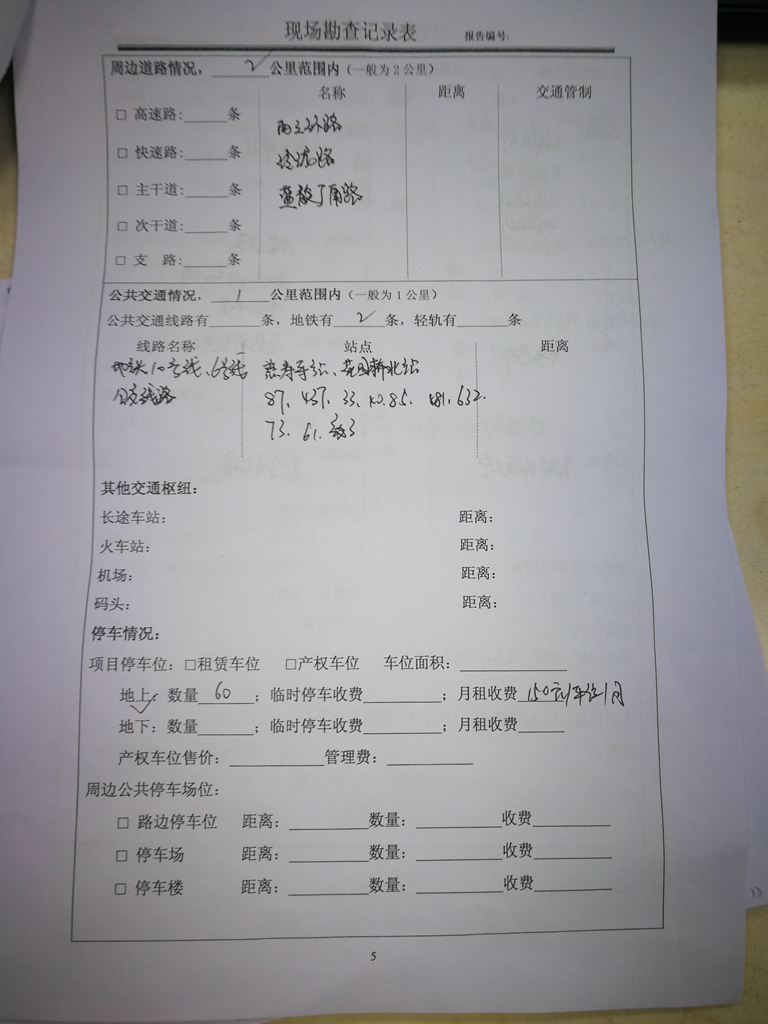 现场勘查记录表 报告编号:
周边道路情况, 2 公里范围内(一般为2公里)
名称 距离 交通管制
□ 高速路:______条 西三环路
□ 快速路:______条 玲珑路
□ 主干道:______条 南路
□ 次干道:______条
□ 支 路:______条
公共交通情况, 1 公里范围内(一般为1公里)
公共交通线路有______条, 地铁有 2 条, 轻轨有______条
线路名称 站点 距离
地铁10号线、6号线 慈寿寺站、花园桥北站
公交线路 87、437、33、 85、 481、632.
73、61、
其他交通枢纽:
长途车站: 距离:
火车站: 距离:
机场: 距离:
码头: 距离:
停车情况:
项目停车位: □租赁车位 □产权车位 车位面积: ____________
地上: 数量 60 ; 临时停车收费_________; 月租收费 150元/车位/月
地下: 数量______; 临时停车收费_________; 月租收费_____
产权车位售价: ___________管理费: __________
周边公共停车场位:
□ 路边停车位 距离: _________数量: __________收费_________
□ 停车场 距离: _________数量: __________收费_________
□ 停车楼 距离: _________数量: __________收费_________
5